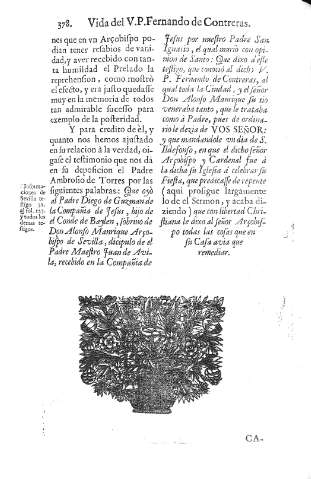 378. Vida del V. P. Fernando de Contreras.
nes que en vn Arçobispo po-
dian tener resabios de vani-
dad, y aver recebido con tan-
ta humildad el Prelado la
reprehension, como mostró
el efecto, y era justo quedasse
muy en la memoria de todos
tan admirable sucesso para
exemplo de la posteridad.
Y para credito de èl, y
quanto nos hemos ajustado
en su relacion à la verdad, oi-
gase el testimonio que nos dà
en su deposicion el Padre
Ambrosio de Torres por las
siguientes palabras: Que oyò
al Padre Diego de Guzman de
la Compañia de Jesus, hijo de
el Conde de Baylen, sobrino de
Don Alonso Manrique Arço-
bispo de Sevilla, dicipulo de el
Padre Maestro Juan de Avi-
la, recebido en la Compañia de
Informa-
ciones de
Sevilla te-
stigo
el fol.
y todos los
demas te-
stigos.
Jesus por nuestro Padre San
Ignacio, el qual murió con opi-
nion de Santo: Que dixo à este
testigo, que conociò al dicho V.
P. Fernando de Contreras, al
qual toda la Ciudad, y el señor
Don Alonso Manrique su tio
veneraba tanto, que le trataba
como à Padre, pues de ordina-
rio le dezia de VOS SEÑOR:
y que mandandole vn dia de S.
Ildefonso, en que el dicho señor
Arçobispo y Cardenal fue à
la dicha su Iglesia à celebrar su
Fiesta, que predicasse de repente
(aqui prosigue largamente
lo de el Sermon, y acaba di-
ziendo) que con libertad Chri-
stiana le dixo al señor Arçobis-
po todas las cosas que en
su Casa avia que
remediar.
CA-